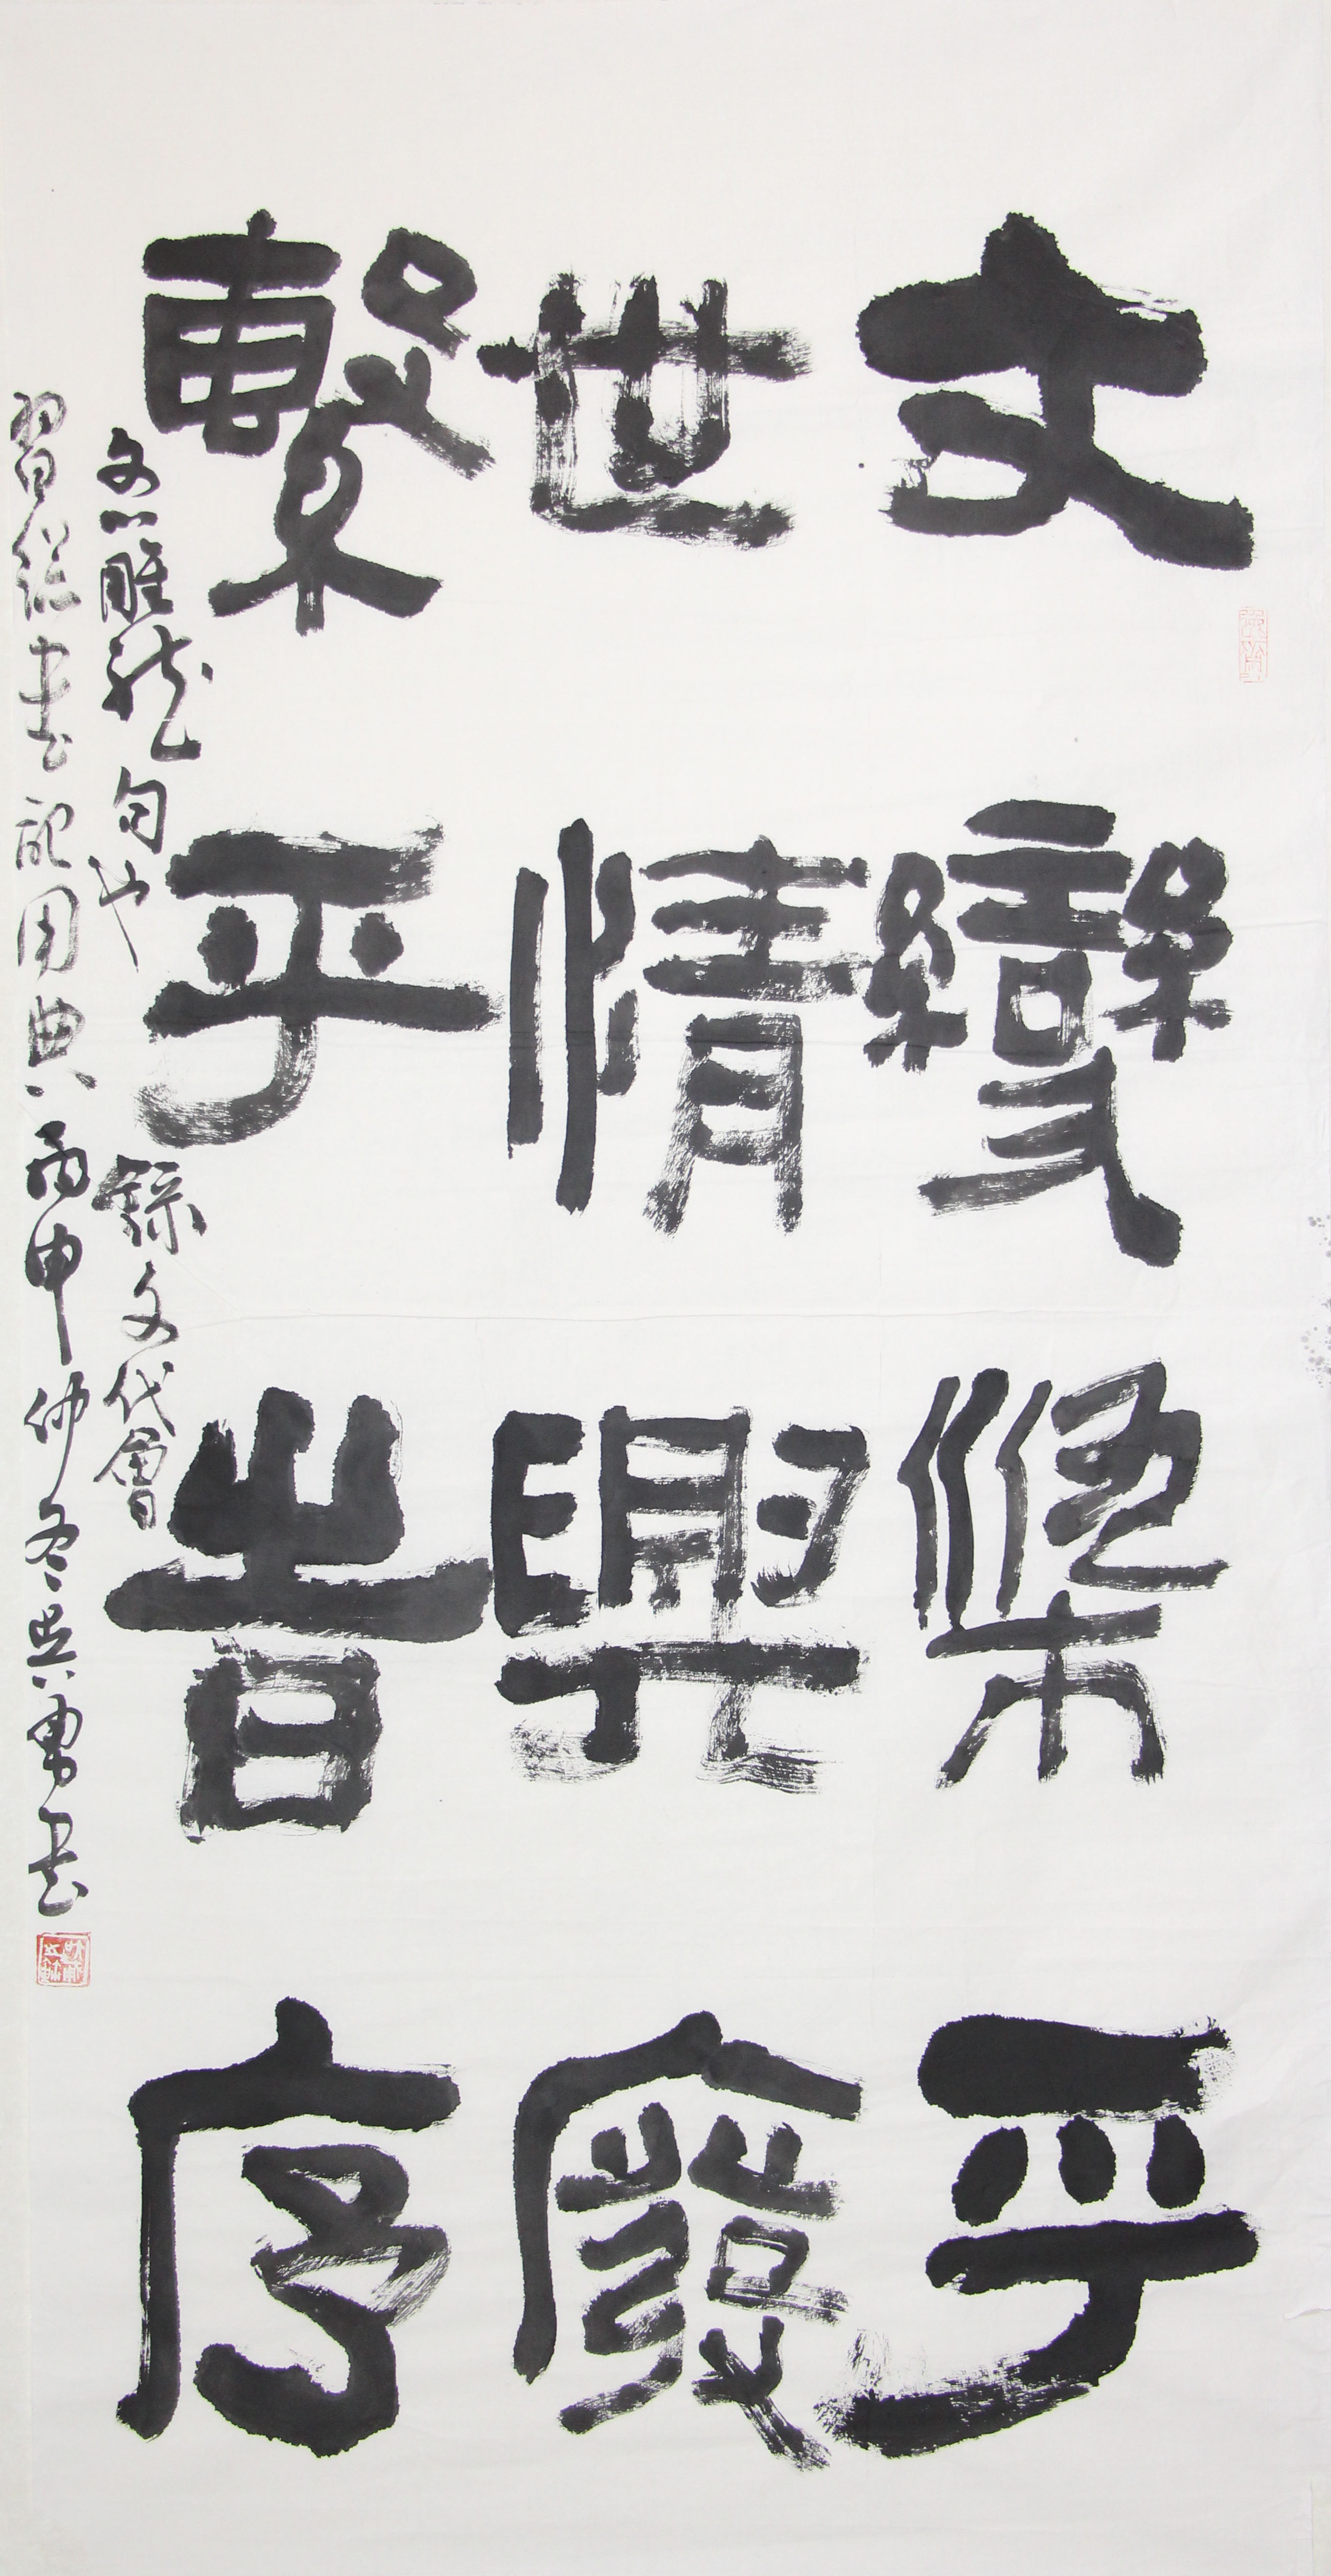 文變染乎
世情興廢
繫乎旹序
文心雕龍句也 錄文代會
習總書記用典 丙申仲冬 勇書